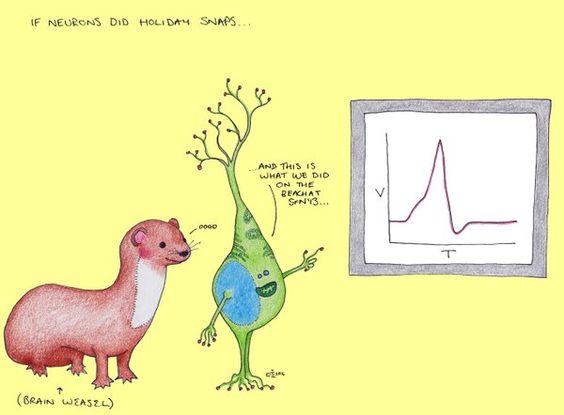 IF NEURONS DID HOLIDAY SNAPS...
...AND THIS IS
WHAT WE DID
ON THE
BEACH AT
SFN'13...
OOOO
V
T
(BRAIN WEASEL)